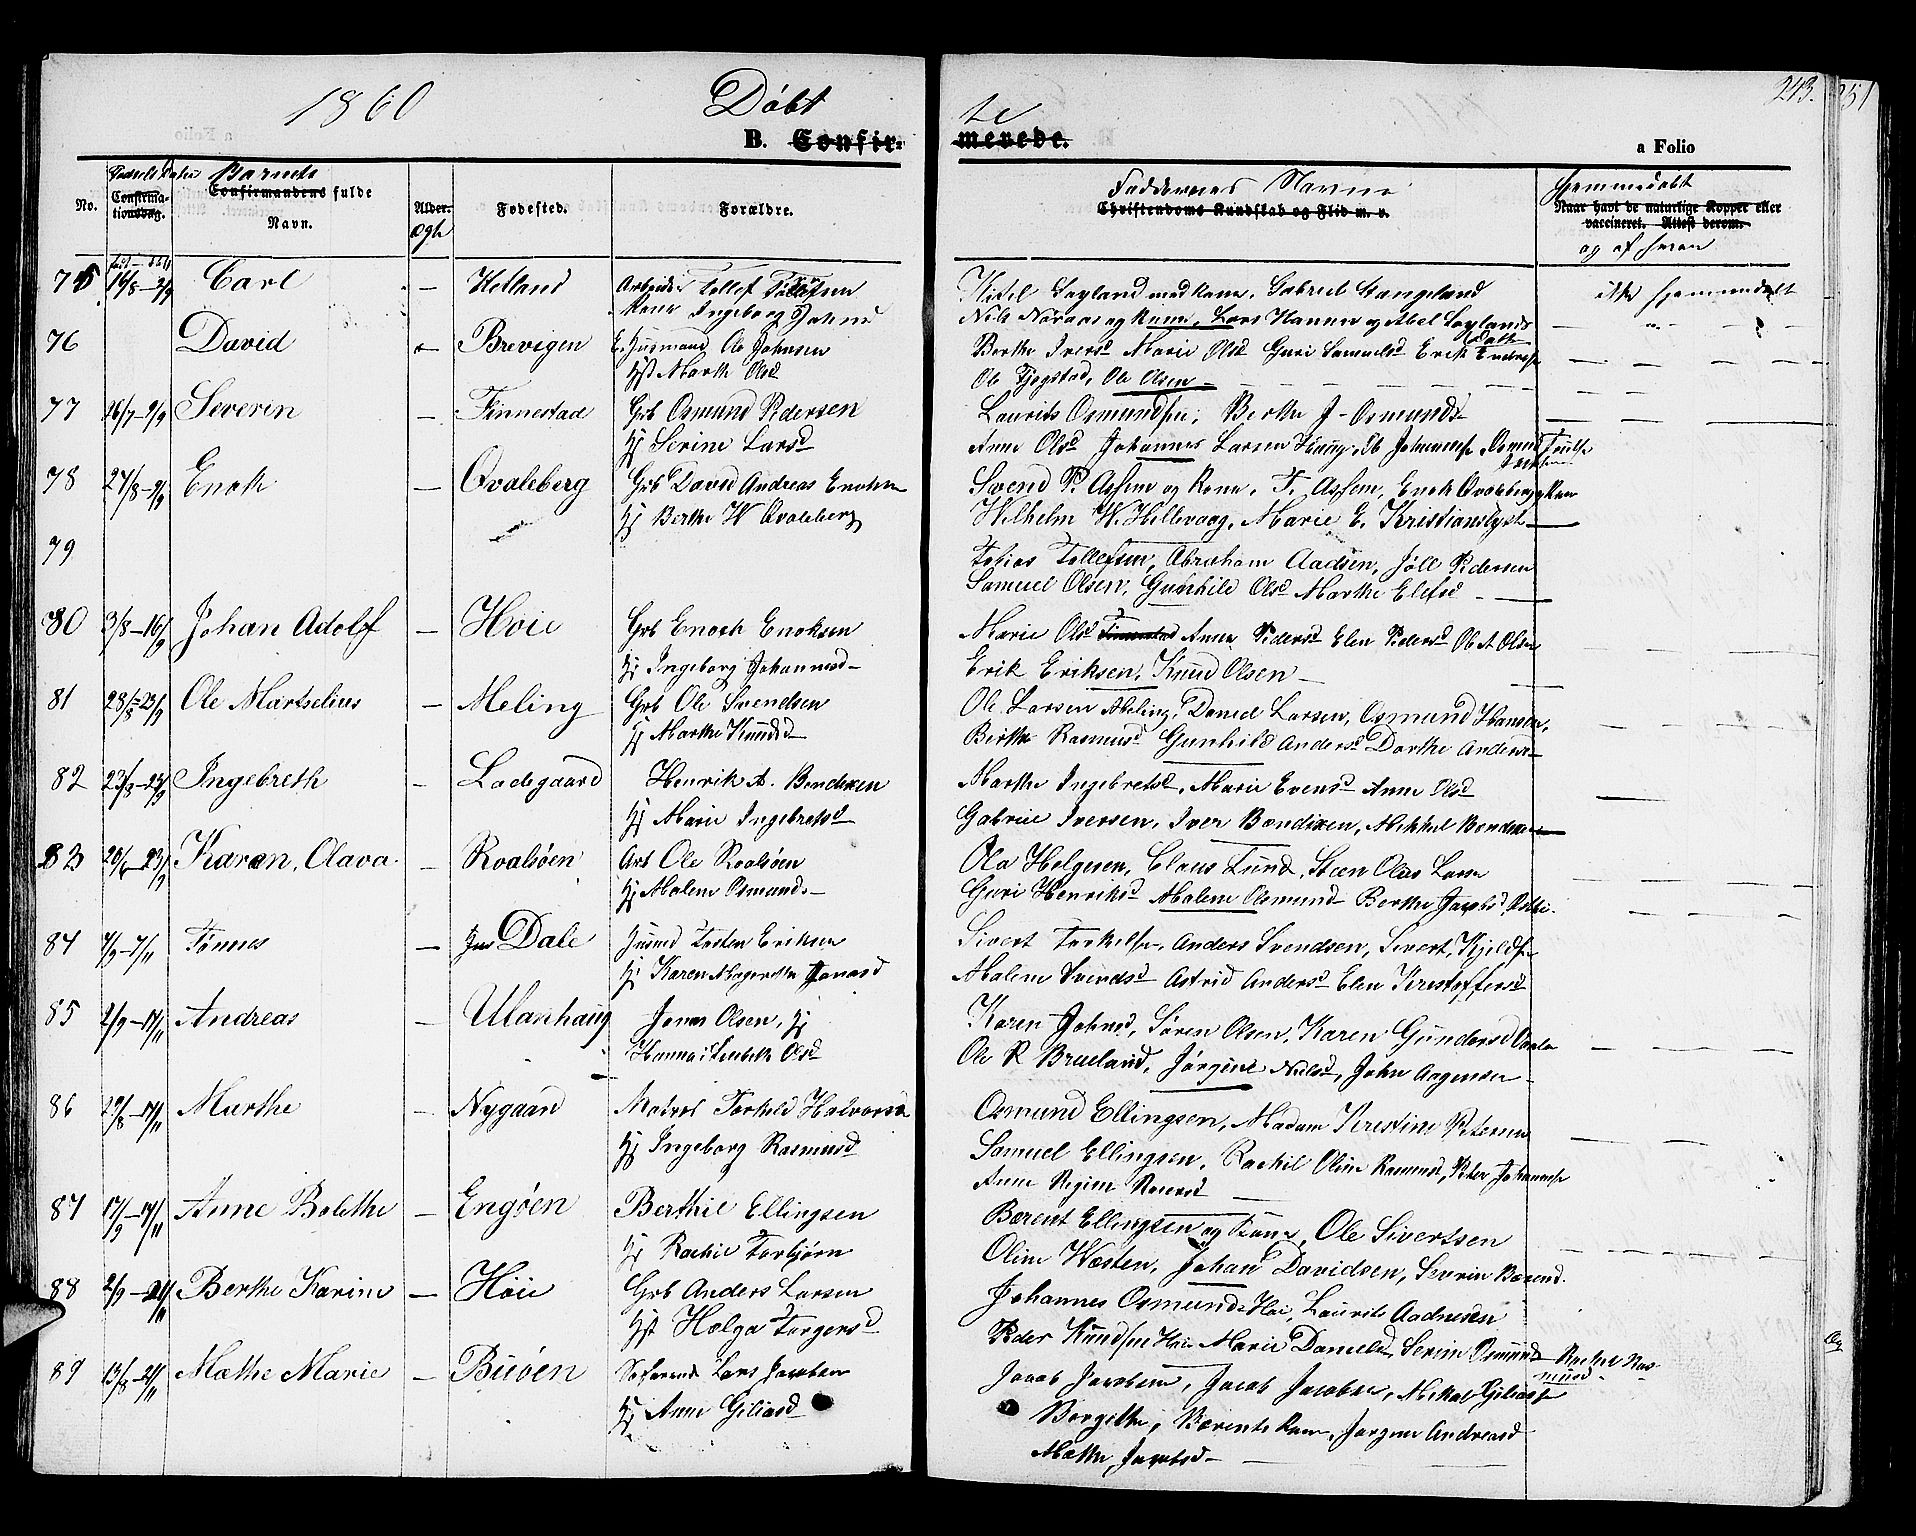 1860
Döbt
te
243.
251
B. Confir-
merede.
a Folio
Fødsels Datum
Barnets
Faddernes Navne
Hjemmedøbt
No.
Confirma-
tionsdag.
Confirmandens fulde
Navn.
Alder.
Ægte
Fødested.
Forældre.
Christendoms Kundskab og Flid m. v.
Naar havt de naturlige Kopper eller
vaccineret. Attest derom.
og af hvem
75 16/8 – 2/9 Carl — Hetland Arbeider Tollef Tollefsen
Kone Ingeborg Johns
Gabriel Stangeland
ikke hjemmedøbt
Nils og Kone, Lars Hannes og Abel
76 David Brevigen Husmand Ole Johnsen
Hst Marthe Olsd
Berthe Iversd Marie Olsd Guri Samuelsd Erik
Ole Fjogstad, Ole Olsen
77 16/7 – 9/9 Severin — Finnestad Grb Osmund Pedersen
Hj Serine Larsd
Laurits Osmundsen; Berthe J. Osmunds
Anne Olsd Johannes Larsen Haug,
78 27/8 – 9/9 Enok — Qvaleberg Grb David Andreas Enoksen
Hj Berthe W Qvaleberg
Svend P. og Kone, T. Enok Qvaleberg og Kone
Wilhelm W. Hillevaag, Marie E. Kristianslyst
79
Tobias Tollefsen, Abraham Aadsen, Joll Pedersen
Samuel Olsen, Gunhild Olsd Marthe Elefsd
80 3/8 – 16/9 Johan Adolf — Höie Grb Enoch Enoksen
Hj Ingeborg Johannesd
Marie Olsd Anne Pedersd Elen Pedersd Ole A Olsen
Erik Eriksen, Knud Olsen
81 28/8 – 23/9 Ole Martselius — Meling Grb Ole Svendsen
Hj Marthe Knudsd
Ole Larsen Meling, Daniel Larsen, Osmund Hansen,
Berthe Rasmusd Gunhild Andersd Dorthe Anders
82 23/8 – 23/9 Ingebreth — Ladegaard Henrik A. Bendixen
Hj Marie Ingebretsd
Marthe Ingebretsd, Marie Evensd Anne Olsd
Gabriel Iversen, Iver Bendixen, Mikkel Bendixen
83 20/6 – 23/9 Karen, Olava — Roalsöen Arb Ole Roalsöen
Hj Malene Osmunds
Ola Helgesen, Claus Lund, Steen Olaus Larsen
Guri Henriksd Malene Osmund Berthe Jacobsd
84 4/9 – 7/11 Tönnes — Dale Husmd Torsten Eriksen
Hj Karen Margrethe Jonasd
Sivert Torkelsen, Anders Svendsen, Sivert Kjeldsen
Malene Svendsd Astrid Andersd Elen Kristoffersd
85 2/9 – 14/11 Andreas — Ulanhaug Jonas Olsen, Hj
Hanna Lisebeth Olsd
Karen Johnsd, Sören Olsen, Karen Gundersd
Ole R Brueland, Jörgine Nielsd, John Aagensen
86 29/8 – 14/11 Marthe — Nygaard Matros Torkeld Halvorsen
Hj Ingeborg Rasmusd
Osmund Ellingsen, Madam Kirestine Petersen
Samuel Ellingsen, Rachil Oline Rasmusd, Peter Johannesen
Anne Regine
87 17/9 – 14/11 Anne Bolethe — Engöen Berthil Ellingsen
Hj Rachel Torbjörn
Berent Ellingsen og Kone, Ole Sivertsen
Oline Westen, Johan Davidsen, Severin Berend.
88 2/9 – 21/11 Berthe Karine — Höie Grb Anders Larsen
Hst Helga Torgersd
Johannes Osmunds Höie, Laurits Aadnesen
Peder Knudsen Höie Marie Danielsd, Serine Osmunds Rachel Ras-
musd
89 13/8 – 21/11 Mathe Marie — Buöen Söfarende Lars Jacobsen
Hj Anne Giliasd
Jacob Jacobsen, Jacob Jacobsen, Mikal Giliasen
Borgitha, Berents Kone, Jörgine Andreasd
Mathe Jacobsd